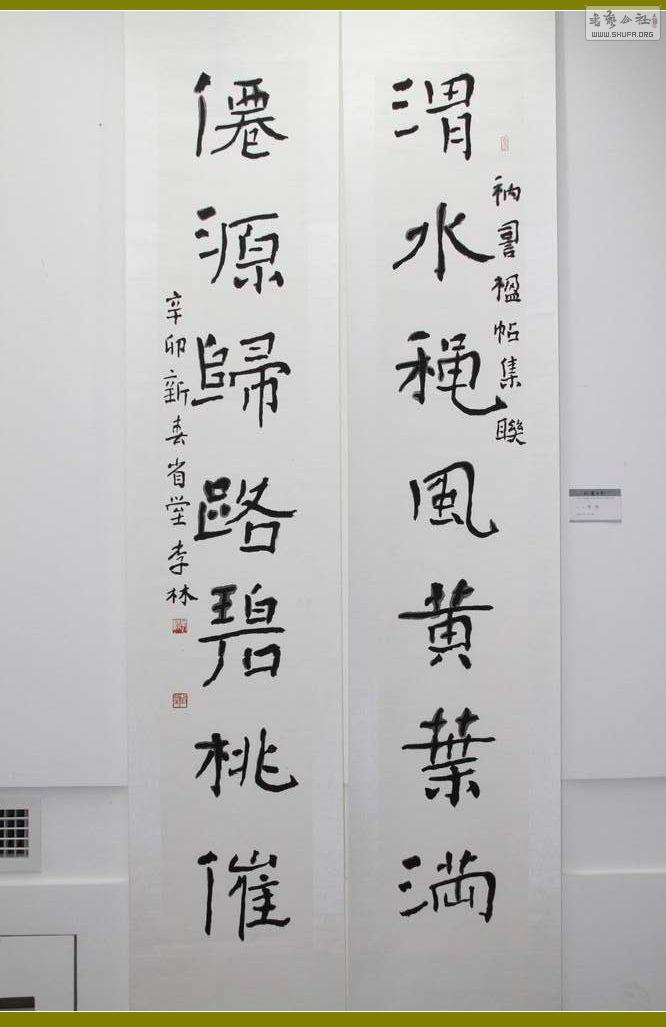 書藝公社
WWW.SHUFA.ORG
衲書楹帖集聯
渭水穐風黄葉満
僊源歸路碧桃催
辛卯新春省堂李林